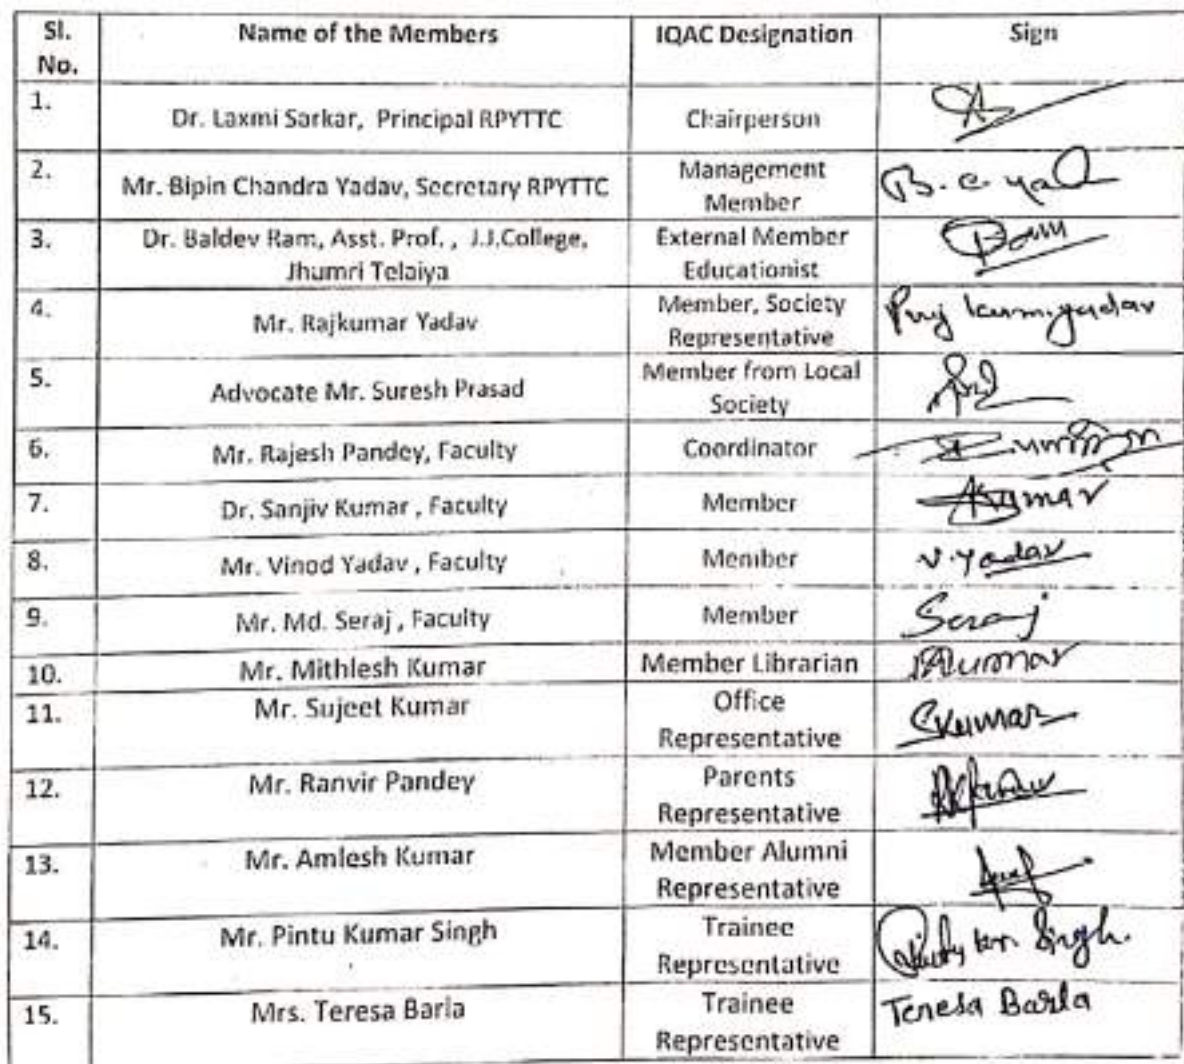 Sl. No. Name of the Members IQAC Designation Sign
1. Dr. Laxmi Sarkar, Principal RPYTTC Chairperson
2. Mr. Bipin Chandra Yadav, Secretary RPYTTC Management Member B.C. Yad
3. Dr. Baldev Ram, Asst. Prof. , J.J.College, Jhumri Telaiya External Member Educationist Ram
4. Mr. Rajkumar Yadav Member, Society Representative yadav
5. Advocate Mr. Suresh Prasad Member from Local Society
6. Mr. Rajesh Pandey, Faculty Coordinator
7. Dr. Sanjiv Kumar , Faculty Member Kumar
8. Mr. Vinod Yadav , Faculty Member V.Yadav
9. Mr. Md. Seraj , Faculty Member Seraj
10. Mr. Mithlesh Kumar Member Librarian
11. Mr. Sujeet Kumar Office Representative SKumar
12. Mr. Ranvir Pandey Parents Representative
13. Mr. Amlesh Kumar Member Alumni Representative
14. Mr. Pintu Kumar Singh Trainee Representative Singh.
15. Mrs. Teresa Barla Trainee Representative Teresa Barla